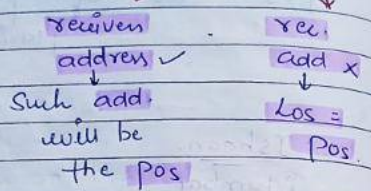 receivers
address ✓
↓
Such add.
will be
the pos
rec.
add x
↓
Los =
pos.